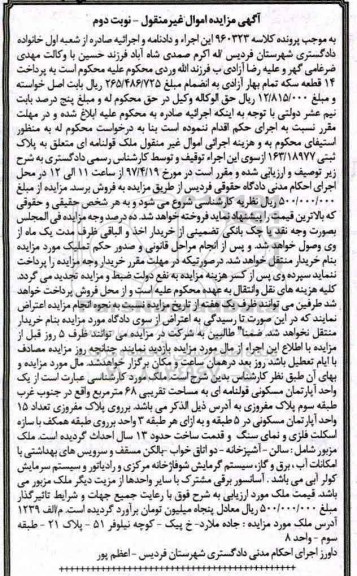 آگهی مزایده اموال غیرمنقول - نوبت دوم
به موجب پرونده کلاسه ۹۶۰۳۲۳ این اجراء و دادنامه و اجرائیه صادره از شعبه اول خانواده
دادگستری شهرستان فردیس له اکرم صمدی شاه آباد فرزند حسین با وکالت مهدی
ضرغامی گهر و علیه رضا آزادی ب فرزند الله وردی محکوم علیه محکوم است به پرداخت
۱۴ قطعه سکه تمام بهار آزادی به انضمام مبلغ ۲۶۵/۴۸۶/۷۲۵ ریال بابت اصل خواسته
و مبلغ ۱۲/۸۱۵/۰۰۰ ریال حق الوکاله وکیل در حق محکوم له و مبلغ پنج درصد بابت
نیم عشر دولتی با توجه به اینکه اجرائیه صادره به محکوم علیه ابلاغ شده و در مهلت
مقرر نسبت به اجرای حکم اقدام ننموده است بنا به درخواست محکوم له به منظور
استیفای محکوم به و هزینه اجرائی اموال غیر منقول ملک قولنامه ای متعلق به پلاک
ثبتی ۱۶۳/۱۸۹۷۷ ازسوی این اجراء توقیف و توسط کارشناس رسمی دادگستری به شرح
زیر توصیف و ارزیابی شده و مقرر است در مورخ ۹۷/۴/۱۹ از ساعت ۱۱ الی ۱۲ در محل
اجرای احکام مدنی دادگاه حقوقی فردیس از طریق مزایده به فروش برسد. مزایده از مبلغ
۵۰۰/۰۰۰/۰۰۰ ریال نظریه کارشناسی شروع می شود و به هر شخص حقیقی و حقوقی
که بالاترین قیمت را پیشنهاد نماید فروخته خواهد شد. ده درصد وجه مزایده فی المجلس
بصورت وجه نقد یا چک بانکی تضمینی از خریدار اخذ و الباقی ظرف مدت یک ماه از
وی وصول خواهد شد. و پس از انجام مراحل قانونی و صدور حکم تملیک مورد مزایده
بنام خریدار منتقل خواهد شد. درصورتیکه در مهلت مقرر خریدار وجه مزایده را پرداخت
ننماید سپرده وی پس از کسر هزینه مزایده به نفع دولت ضبط و مزایده تجدید می گردد.
کلیه هزینه های نقل وانتقال به عهده محکوم علیه است و از محل فروش پرداخت خواهد
شد طرفین می توانند ظرف یک هفته از تاریخ مزایده نسبت به نحوه انجام مزایده اعتراض
نمایند که در این صورت تا رسیدگی به اعتراض از سوی دادگاه مورد مزایده بنام خریدار
منتقل نخواهد شد. ضمناً طالبین به شرکت در مزایده می توانند ظرف ۵ روز قبل از
مزایده با اطلاع این اجراء از مال مورد مزایده بازدید نمایند. چنانچه روز مزایده مصادف
با ایام تعطیل باشد روز بعد درهمان ساعت و مکان برگزار خواهد شد. مال مورد مزایده و
بهای آن طبق نظر کارشناس بدین شرح است ملک مورد کارشناسی عبارت است از یک
واحد آپارتمان مسکونی قولنامه ای به مساحت تقریبی ۶۸ مترمربع واقع در جنوب غرب
طبقه سوم پلاک مفروزی به آدرس ذیل الذکر می باشد. برروی پلاک مفروزی تعداد ۱۵
واحد آپارتمان مسکونی در ۵ طبقه و به ازای هر طبقه ۳ واحد برروی طبقه همکف با سازه
اسکلت فلزی و نمای سنگ و قدمت ساخت حدود ۱۳ سال احداث گردیده است. ملک
مزبور شامل : سالن - آشپزخانه - دو اتاق خواب - بالکن مسقف و سرویس های بهداشتی با
امکانات آب، برق و گاز، سیستم گرمایش شوفاژخانه مرکزی و رادیاتور و سیستم سرمایش
کولر آبی می باشد . آسانسور برقی مشترک با سایر واحدها از مزیت دیگر ملک مزبور می
باشد. قیمت ملک مورد ارزیابی به شرح فوق با رعایت جمیع جهات و شرایط تاثیرگذار
مبلغ ۵۰۰/۰۰۰/۰۰۰ ریال معادل پنجاه میلیون تومان برآورد گردیده است. م/الف ۱۲۳۹
آدرس ملک مورد مزایده : جاده ملارد- خ پیک - کوچه نیلوفر ۵۱ - پلاک ۲۱ - طبقه
سوم - واحد ۸
داورز اجرای احکام مدنی دادگستری شهرستان فردیس - اعظم پور